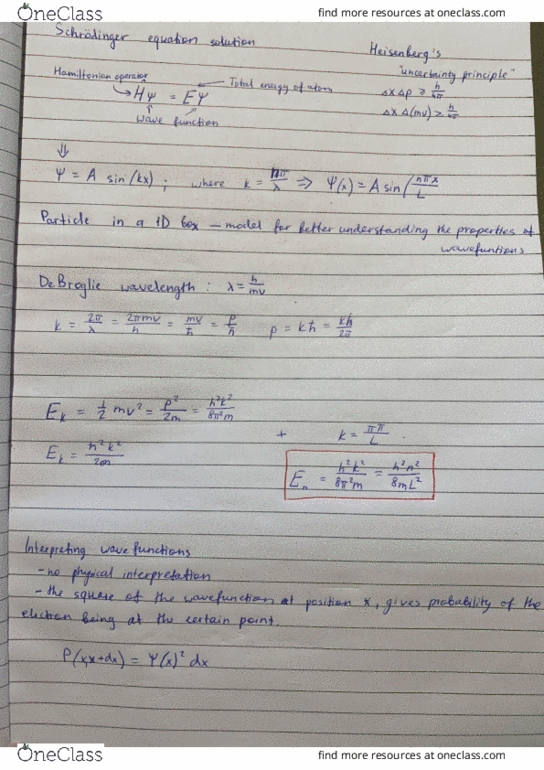 OneClass
find more resources at oneclass.com
Schrödinger equation solution
Heisenberg's
"uncertainty principle"
Hamiltonian operator
Total energy of atom
Hψ = Eψ
wave function
Δx Δp ≥ h/4π
Δx Δ(mv) ≥ h/4π
⇓
Ψ = A sin(kx) ; where k = nπ/λ ⇒ Ψ(x) = A sin(nπx/L
Particle in a 1D box – model for better understanding the properties of
wavefuntions
DeBroglie wavelength : λ = h/mv
k = 2π/λ = 2πmv/h = mv/ħ = p/ħ p = kħ = kh/2π
E_k = 1/2 mv² = p²/2m = h²k²/8π²m
+ k = π/L .
E_k = ħ²k²/2m
E_n = h²k²/8π²m = h²n²/8mL²
Interpreting wave functions
- no physical interpretation
- the square of the wavefunction at position x, gives probability of the
electron being at the certain point.
P(x,x+dx) = Ψ(x)² dx
OneClass
find more resources at oneclass.com